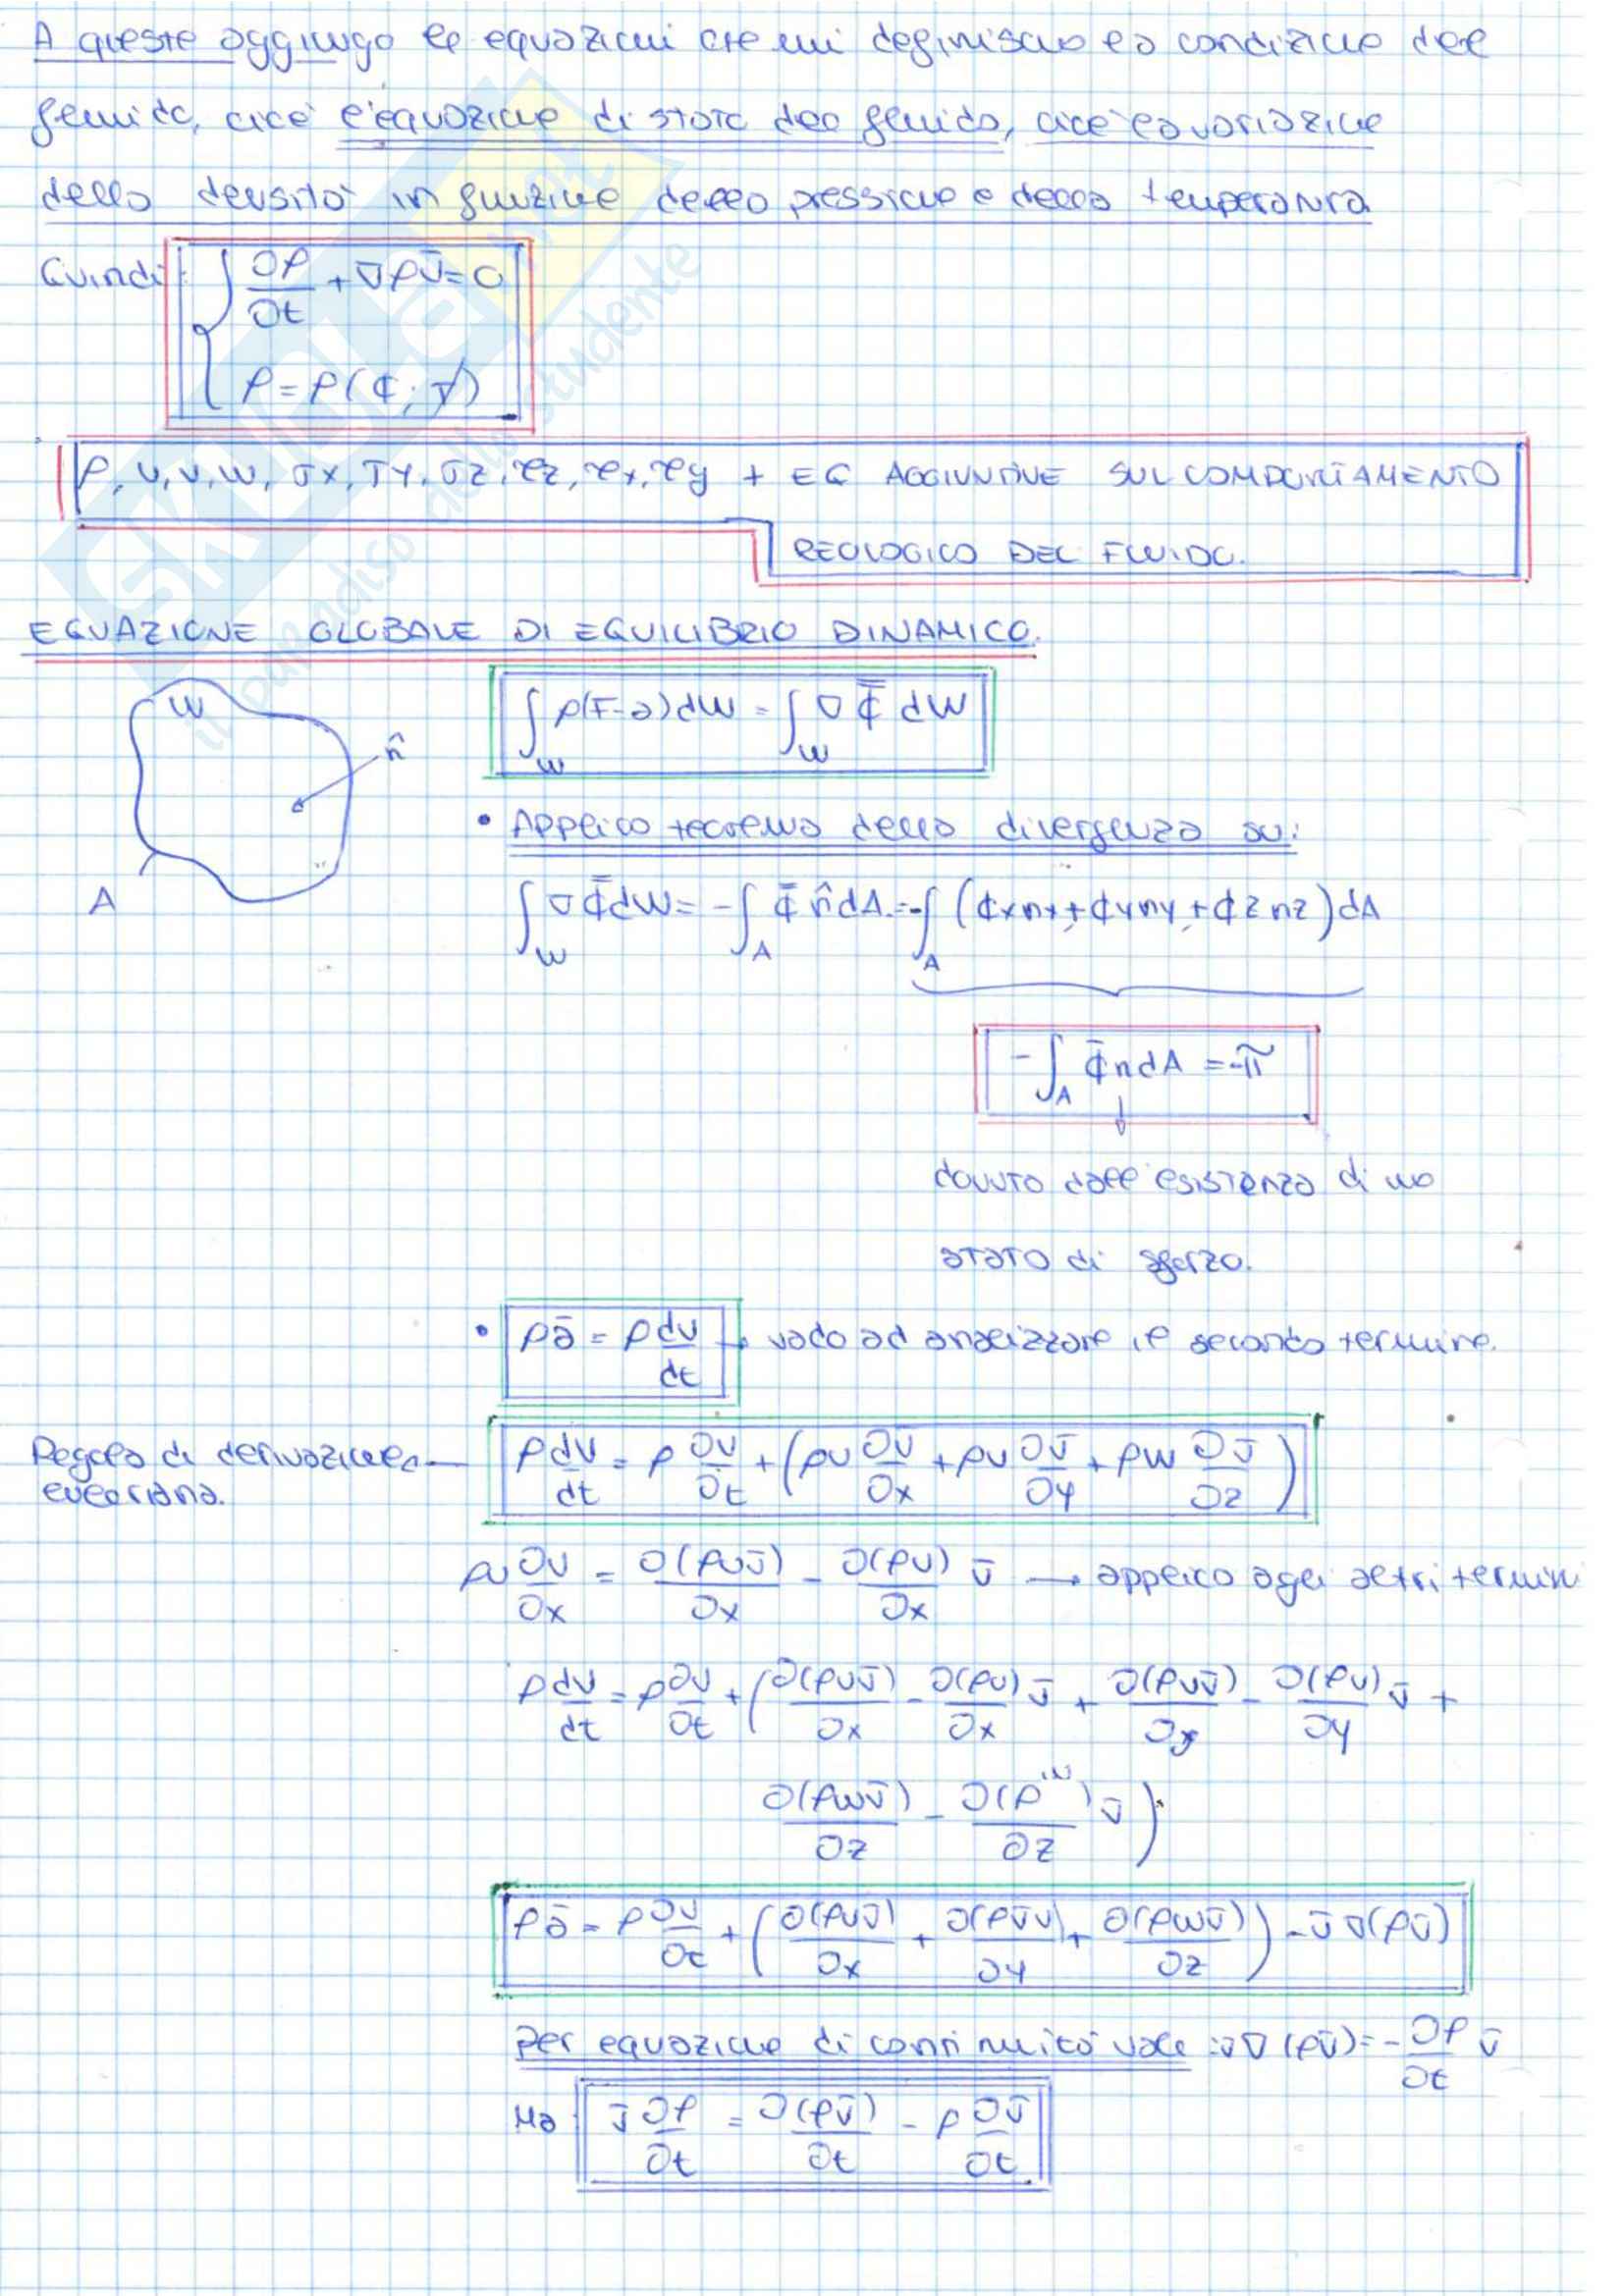 A queste aggiungo le equazioni che mi definiscono la condizione del
fluido, cioè l'equazione di stato del fluido, cioè la variazione
della densità in funzione della pressione e della temperatura
Quindi: { ∂ρ/∂t + ∇ρv̄ = 0
ρ = ρ(¢; T)
ρ, u, v, w, σx, σy, σz, τz, τx, τy + EQ AGGIUNTIVE SUL COMPORTAMENTO
REOLOGICO DEL FLUIDO.
EQUAZIONE GLOBALE DI EQUILIBRIO DINAMICO.
W
n̂
A
∫_W ρ(F-a)dW = ∫_W ∇Φ̿ dW
• Applico teorema della divergenza su:
∫_W ∇Φ̿ dW = -∫_A Φ̿ n̂ dA = -∫_A (Φx nx + Φy ny + Φz nz) dA
-∫_A Φ̄ n dA = -π̃
dovuto dall'esistenza di uno
stato di sforzo.
• ρā = ρ dv/dt → vado ad analizzare il secondo termine.
Regola di derivazione
euleriana.
ρ dv/dt = ρ ∂v/∂t + (ρu ∂v̄/∂x + ρv ∂v̄/∂y + ρw ∂v̄/∂z)
ρu ∂v/∂x = ∂(ρuv̄)/∂x - ∂(ρu)/∂x v̄ → applico agli altri termini
ρ dv/dt = ρ ∂v/∂t + (∂(ρuv̄)/∂x - ∂(ρu)/∂x v̄ + ∂(ρvv̄)/∂y - ∂(ρv)/∂y v̄ +
∂(ρwv̄)/∂z - ∂(ρw)/∂z v̄)
ρā = ρ ∂v/∂t + (∂(ρuv̄)/∂x + ∂(ρv̄v)/∂y + ∂(ρwv̄)/∂z) - v̄ ∇(ρv̄)
per equazione di continuità vale: v̄∇(ρv̄) = -∂ρ/∂t v̄
Ma: v̄ ∂ρ/∂t = ∂(ρv̄)/∂t - ρ ∂v̄/∂t
SKUOLA.net
il paradiso dello studente